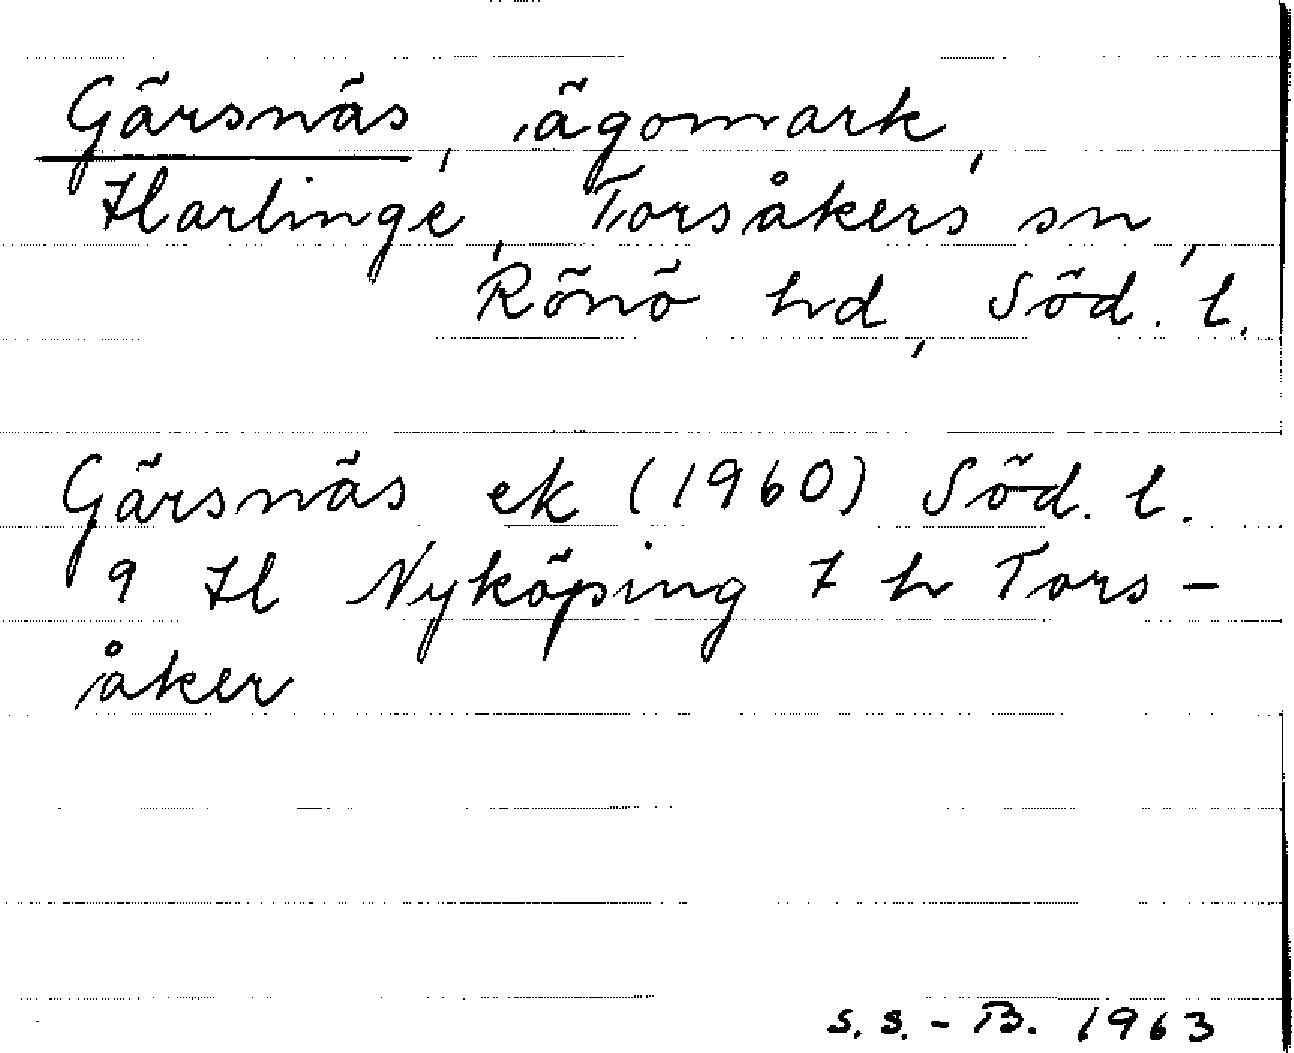 Gärsnäs, ägomark,
Harlinge, Torsåkers sn,
Rönö hd, Söd. l.
Gärsnäs ek (1960) Söd. l.
9 H Nyköping 7 h Tors-
åker
S.S.-B. 1963